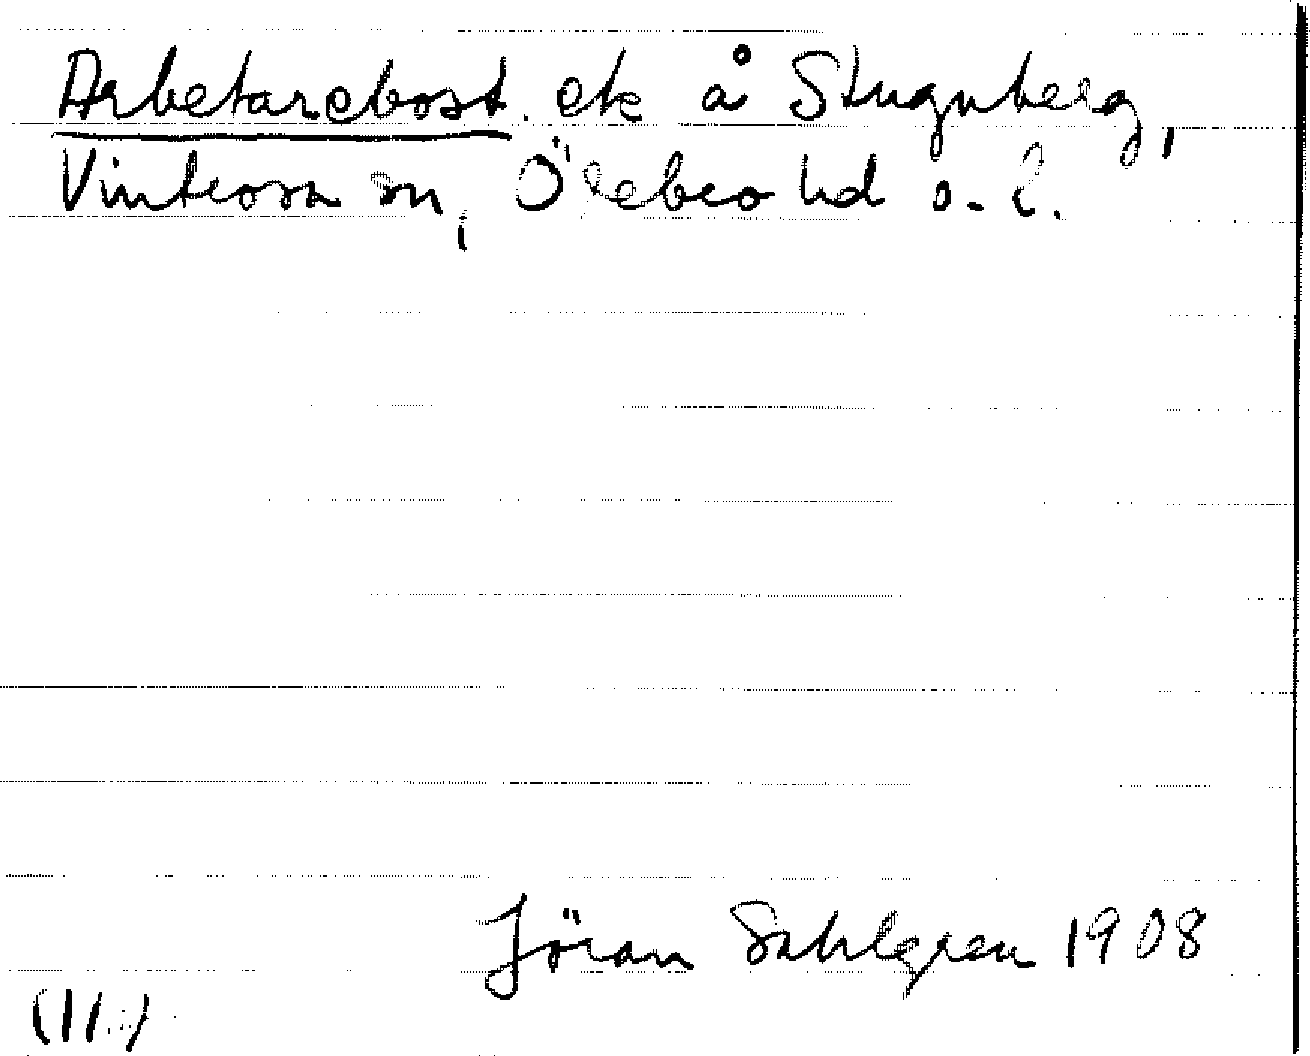 Arbetarebost. etc å Stugnberg,
Vintrosa sn, Örebro hd o. l.
Jöran Sahlgren 1908